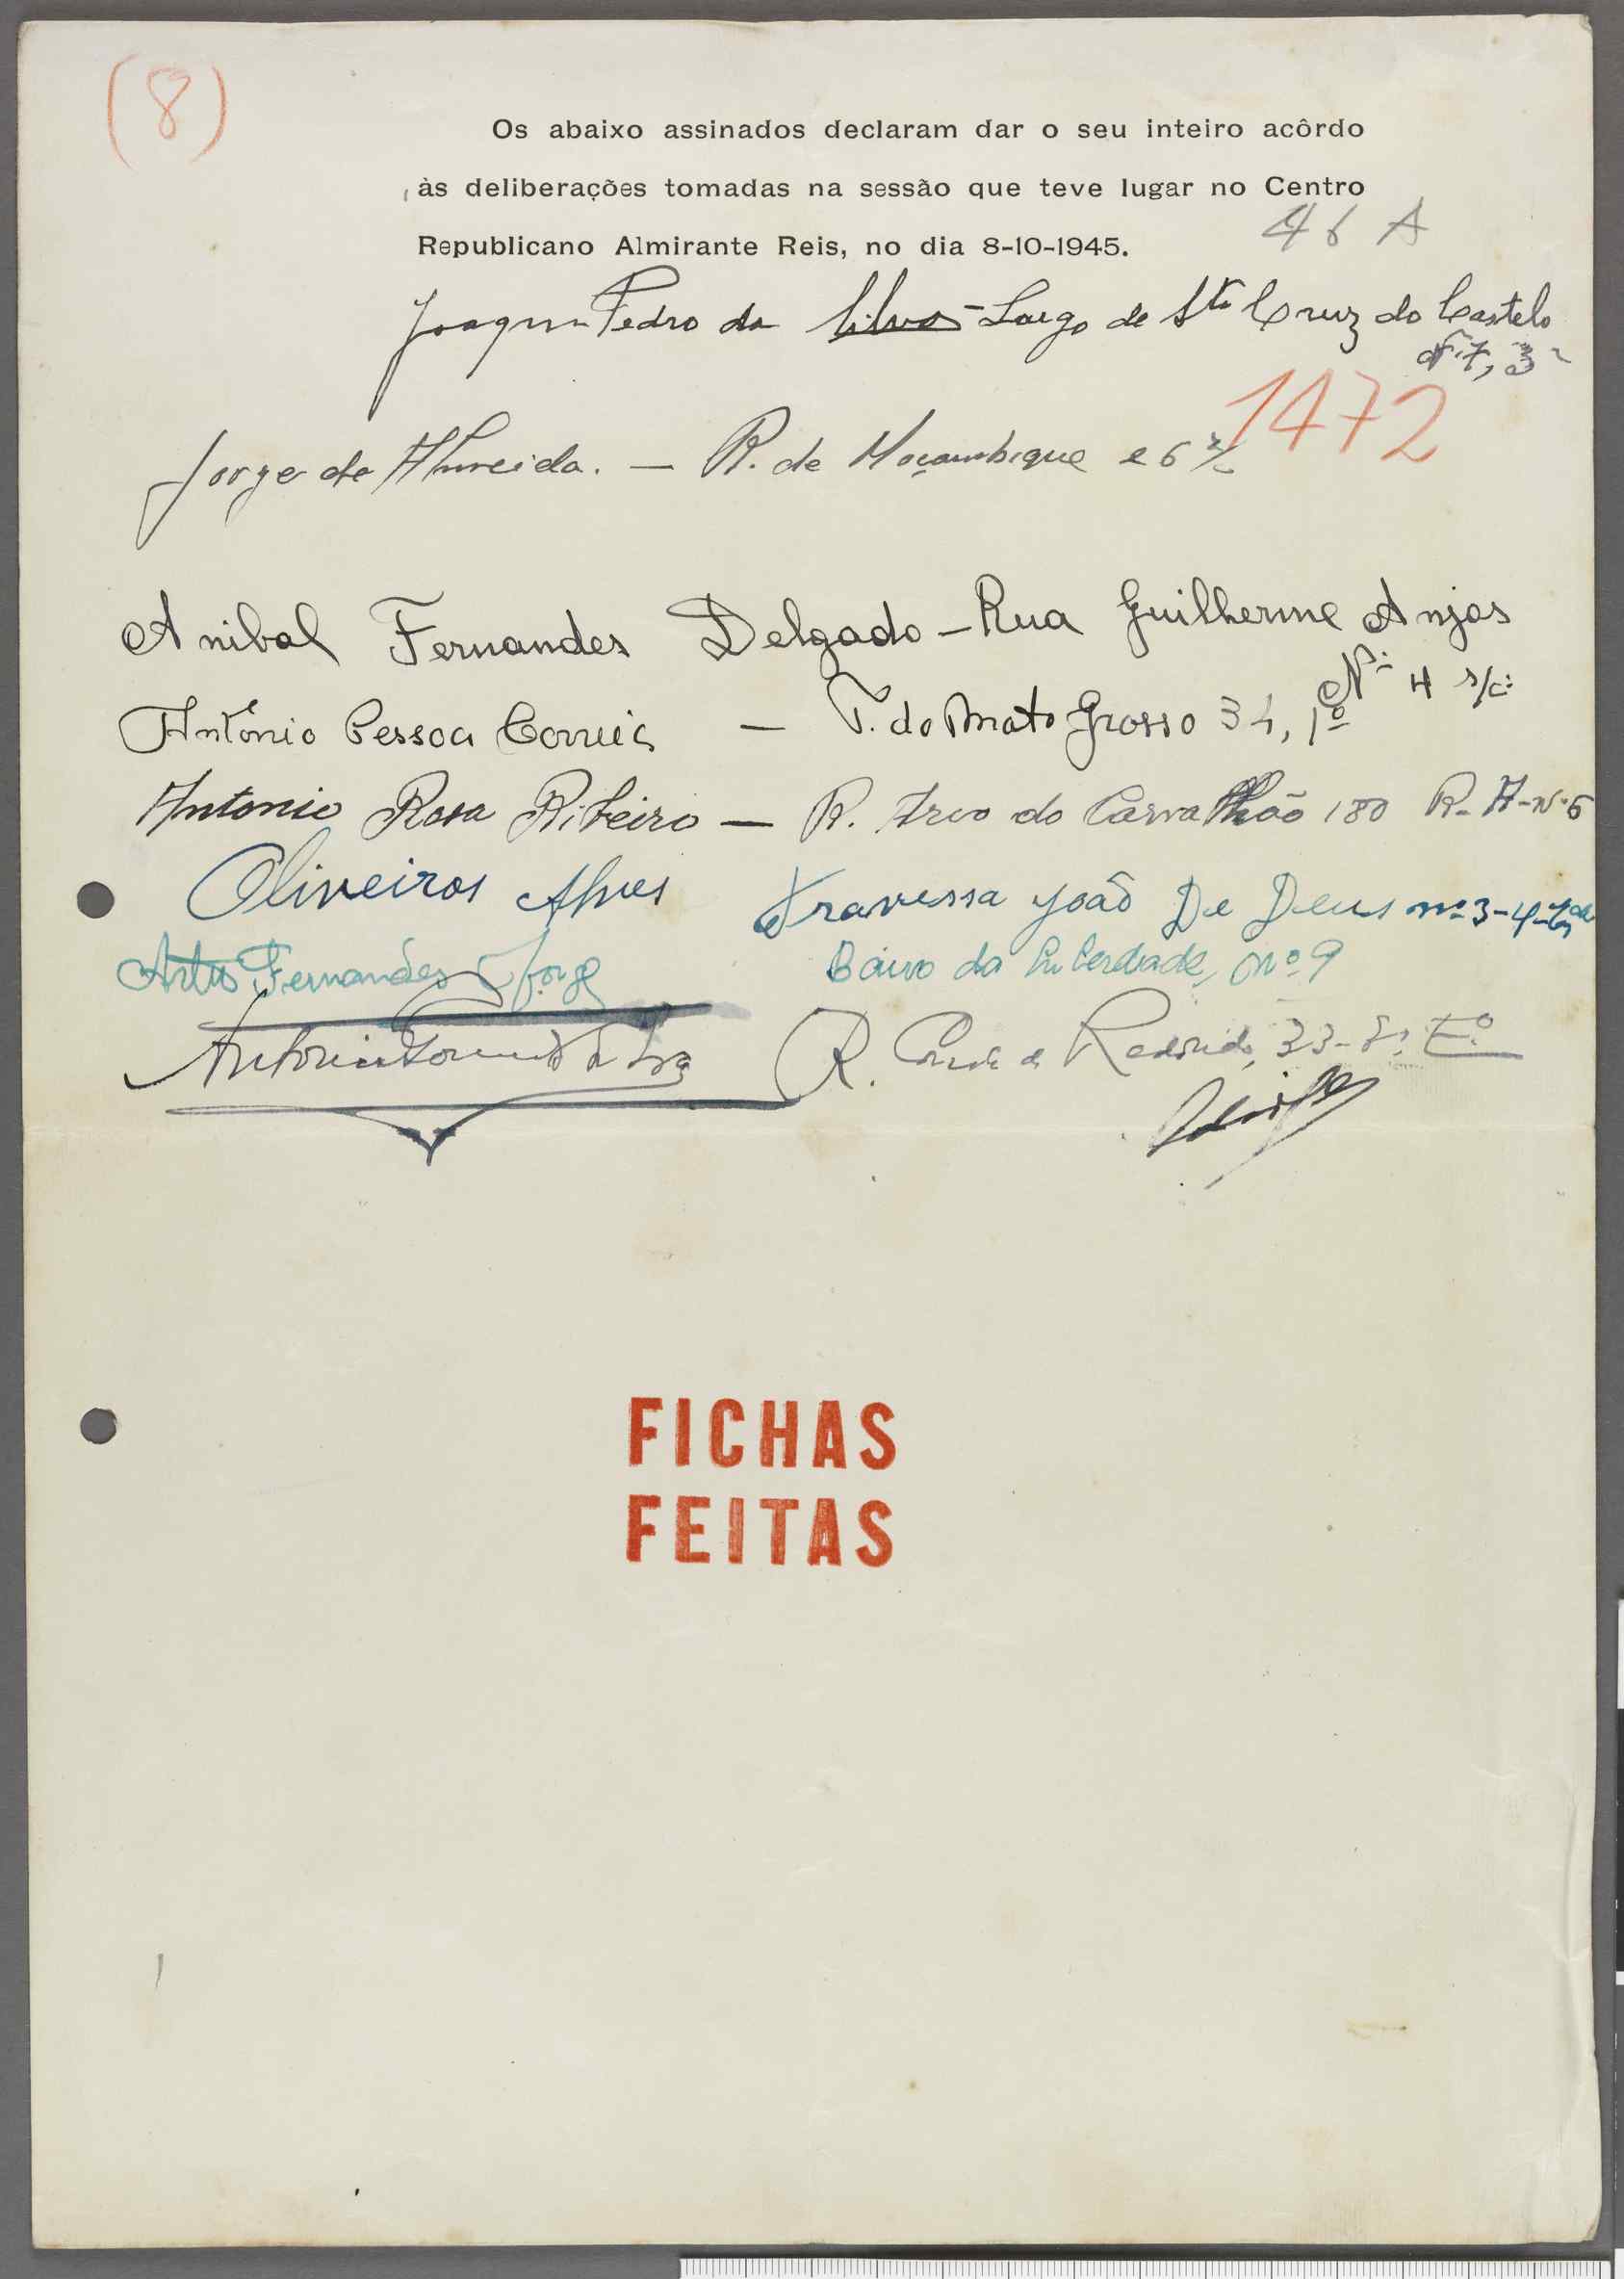 (8)
Os abaixo assinados declaram dar o seu inteiro acôrdo
às deliberações tomadas na sessão que teve lugar no Centro
Republicano Almirante Reis, no dia 8-10-1945.
46 A
Joaquim Pedro da Silva - Largo de Stª Cruz do Castelo
Nº 7, 3º
1472
Jorge de Almeida. — R. de Moçambique e 6
Anibal Fernandes Delgado - Rua Guilherme Anjos
Nº 4 r/c
António Pessoa Correia — T. do Mato Grosso 34, 1º
Antonio Rosa Ribeiro — R. Arco do Carvalhão 180 R-A-Nº 6
Oliveiros Alves Travessa João De Deus nº 3-4-
Artur Fernandes Jorge Bairro da Liberdade, nº 9
Antonio R. Conde de Redondo, 33- Eº
FICHAS
FEITAS